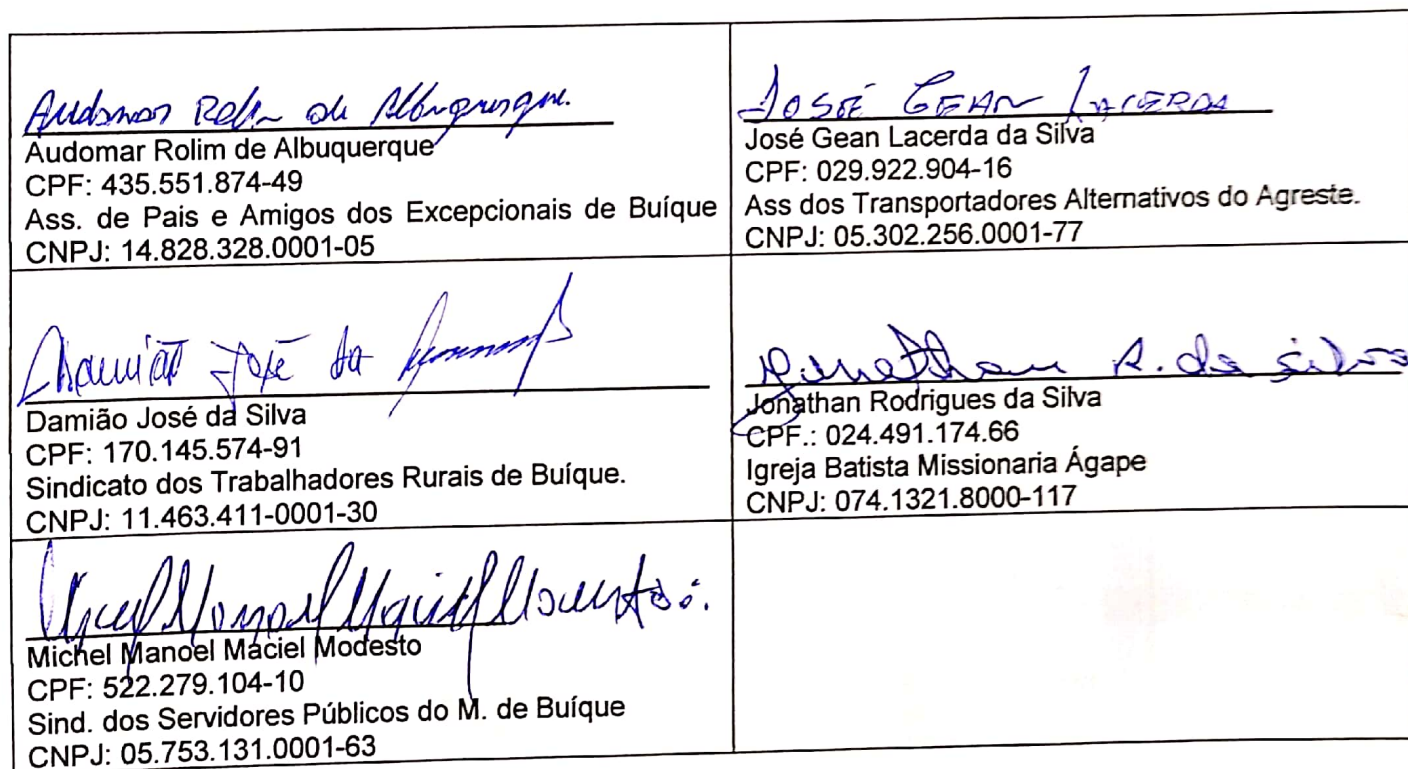 Audomar Rolim de Albuquerque.
Audomar Rolim de Albuquerque
CPF: 435.551.874-49
Ass. de Pais e Amigos dos Excepcionais de Buíque
CNPJ: 14.828.328.0001-05
JOSÉ GEAN LACERDA
José Gean Lacerda da Silva
CPF: 029.922.904-16
Ass dos Transportadores Alternativos do Agreste.
CNPJ: 05.302.256.0001-77
Damião José da
Damião José da Silva
CPF: 170.145.574-91
Sindicato dos Trabalhadores Rurais de Buíque.
CNPJ: 11.463.411-0001-30
Jonathan R. da Silva
Jonathan Rodrigues da Silva
CPF.: 024.491.174.66
Igreja Batista Missionaria Ágape
CNPJ: 074.1321.8000-117
Michel Manoel Maciel Modesto
CPF: 522.279.104-10
Sind. dos Servidores Públicos do M. de Buíque
CNPJ: 05.753.131.0001-63